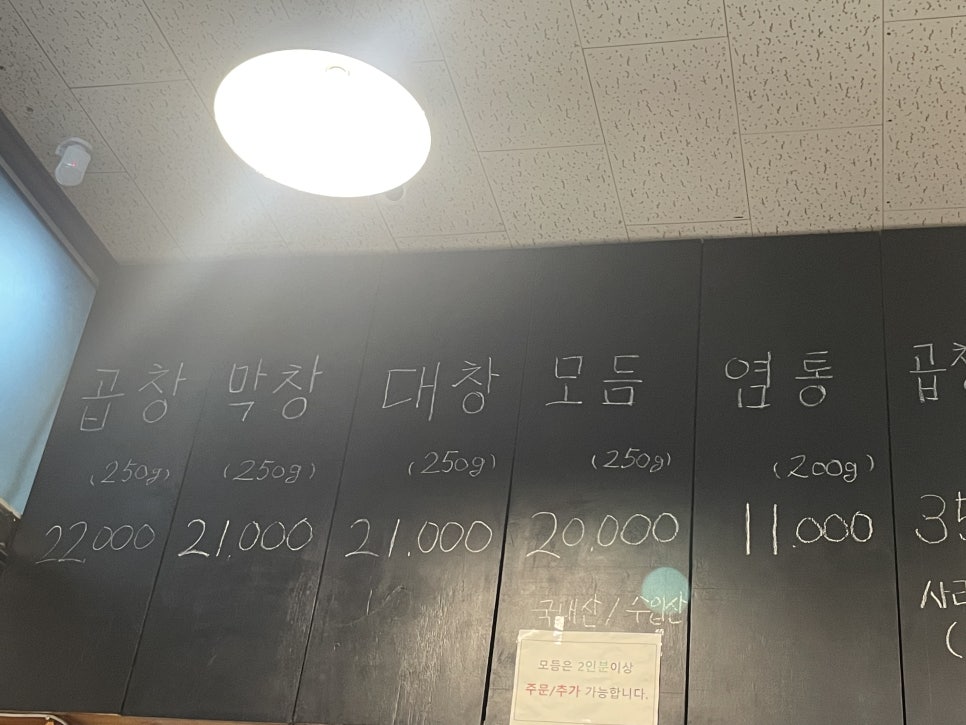 곱창
(250g)
22.000
막창
(250g)
21.000
대창
(250g)
21.000
모듬
(250g)
20.000
국내산/수입산
모듬은 2인분이상
주문/추가 가능합니다.
염통
(200g)
11.000
곱창
35